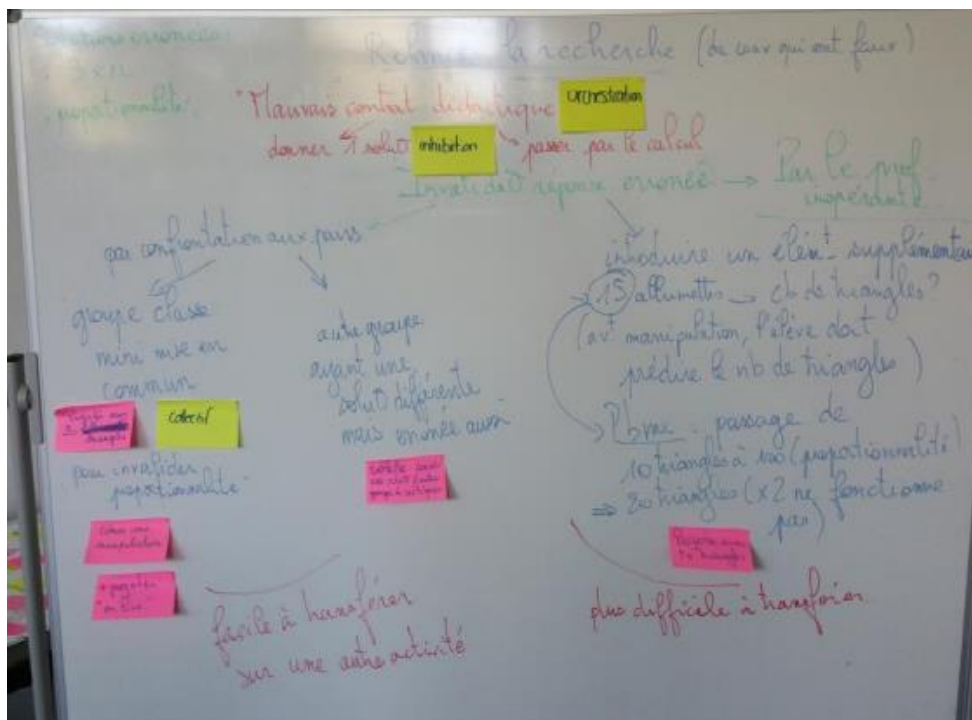 erronées
proportionalité
Relancer la recherche (de ceux qui ont faux)
"Mauvais" contrat didactique
orchestration
donner 1 solut°
inhibition
passer par le calcul
Invalidat° réponse erronée → Par le prof
inopérant
par confrontation aux pairs
groupe classe
mini mise en
commun
collectif
pour invalider
"proportionnalité"
autre groupe
ayant une
solut° différente
mais erronée aussi
introduire un élémt supplémentaire
15 allumettes → cb de triangles?
(avt manipulation, l'élève doit
prédire le nb de triangles)
Pbme : passage de
10 triangles à 100 (proportionnalité)
⇒ 20 triangles (x2 ne fonctionne
pas)
manipulation
facile à transférer
sur une autre activité
plus difficile à transférer.